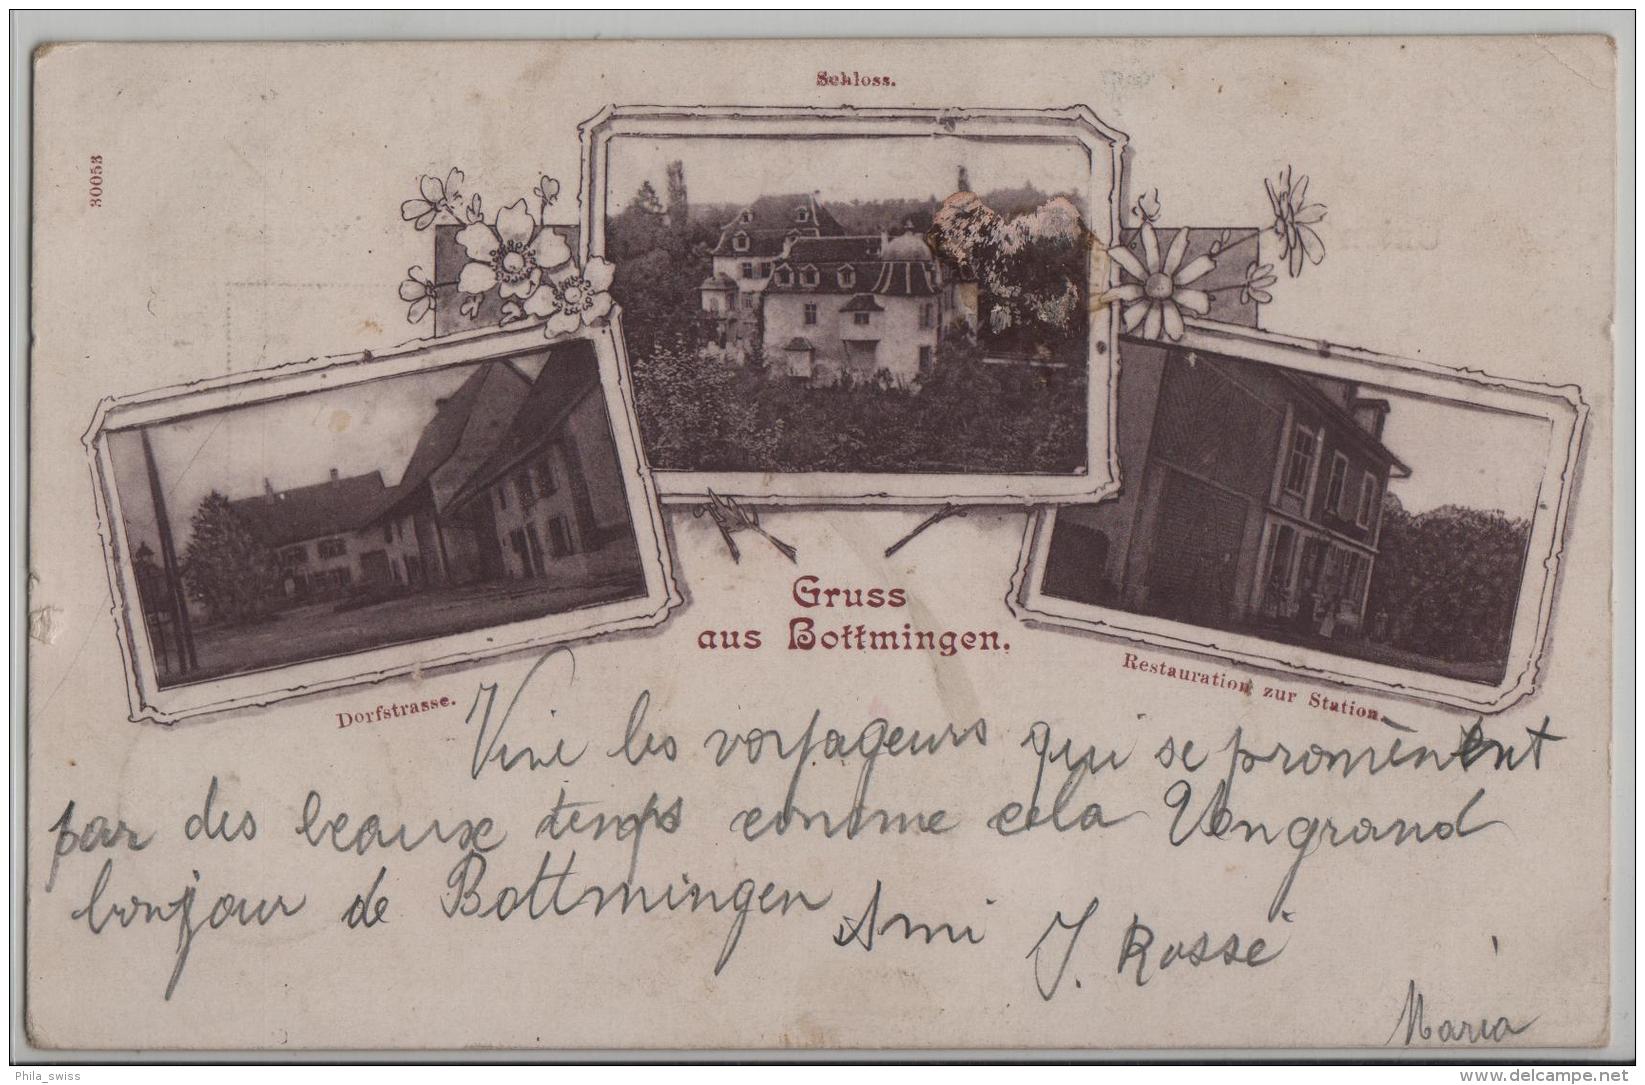 Schloss.
30053
Gruss
aus Bottmingen.
Dorfstrasse.
Restauration zur Station.
Vive les voyageurs qui se promènent
par des beaux temps comme cela Un grand
bonjour de Bottmingen Ami J. Rossé
Maria
Phila_swiss
www.delcampe.net